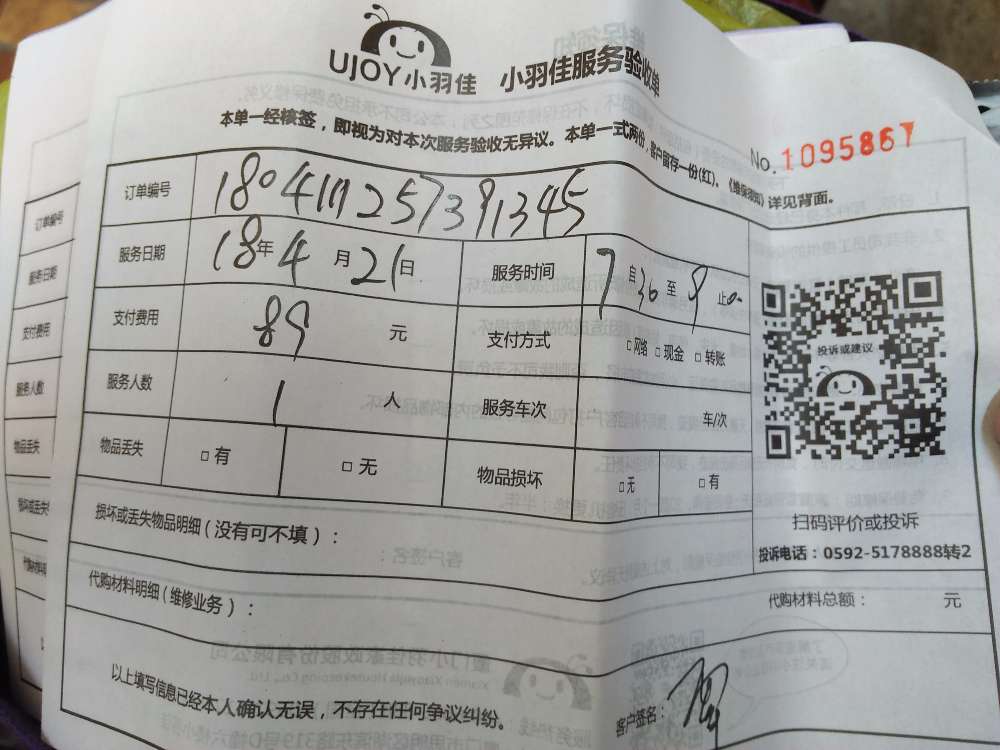 UJOY小羽佳 小羽佳服务验收单
本单一经核签，即视为对本次服务验收无异议。本单一式两份，客户留存一份(红)。《维保须知》详见背面。
No. 1095867
订单编号 1804111257391345
服务日期 18年4月21日 服务时间 7自30至8止00
支付费用 89 元 支付方式 □网络 □现金 □转账
服务人数 1 人 服务车次 车/次
物品丢失 □有 □无 物品损坏 □无 □有
投诉或建议
扫码评价或投诉
投诉电话：0592-5178888转2
损坏或丢失物品明细（没有可不填）：
代购材料明细（维修业务）：
代购材料总额： 元
以上填写信息已经本人确认无误，不存在任何争议纠纷。
客户签名：
订单编号
服务日期
支付费用
服务人数
物品丢失